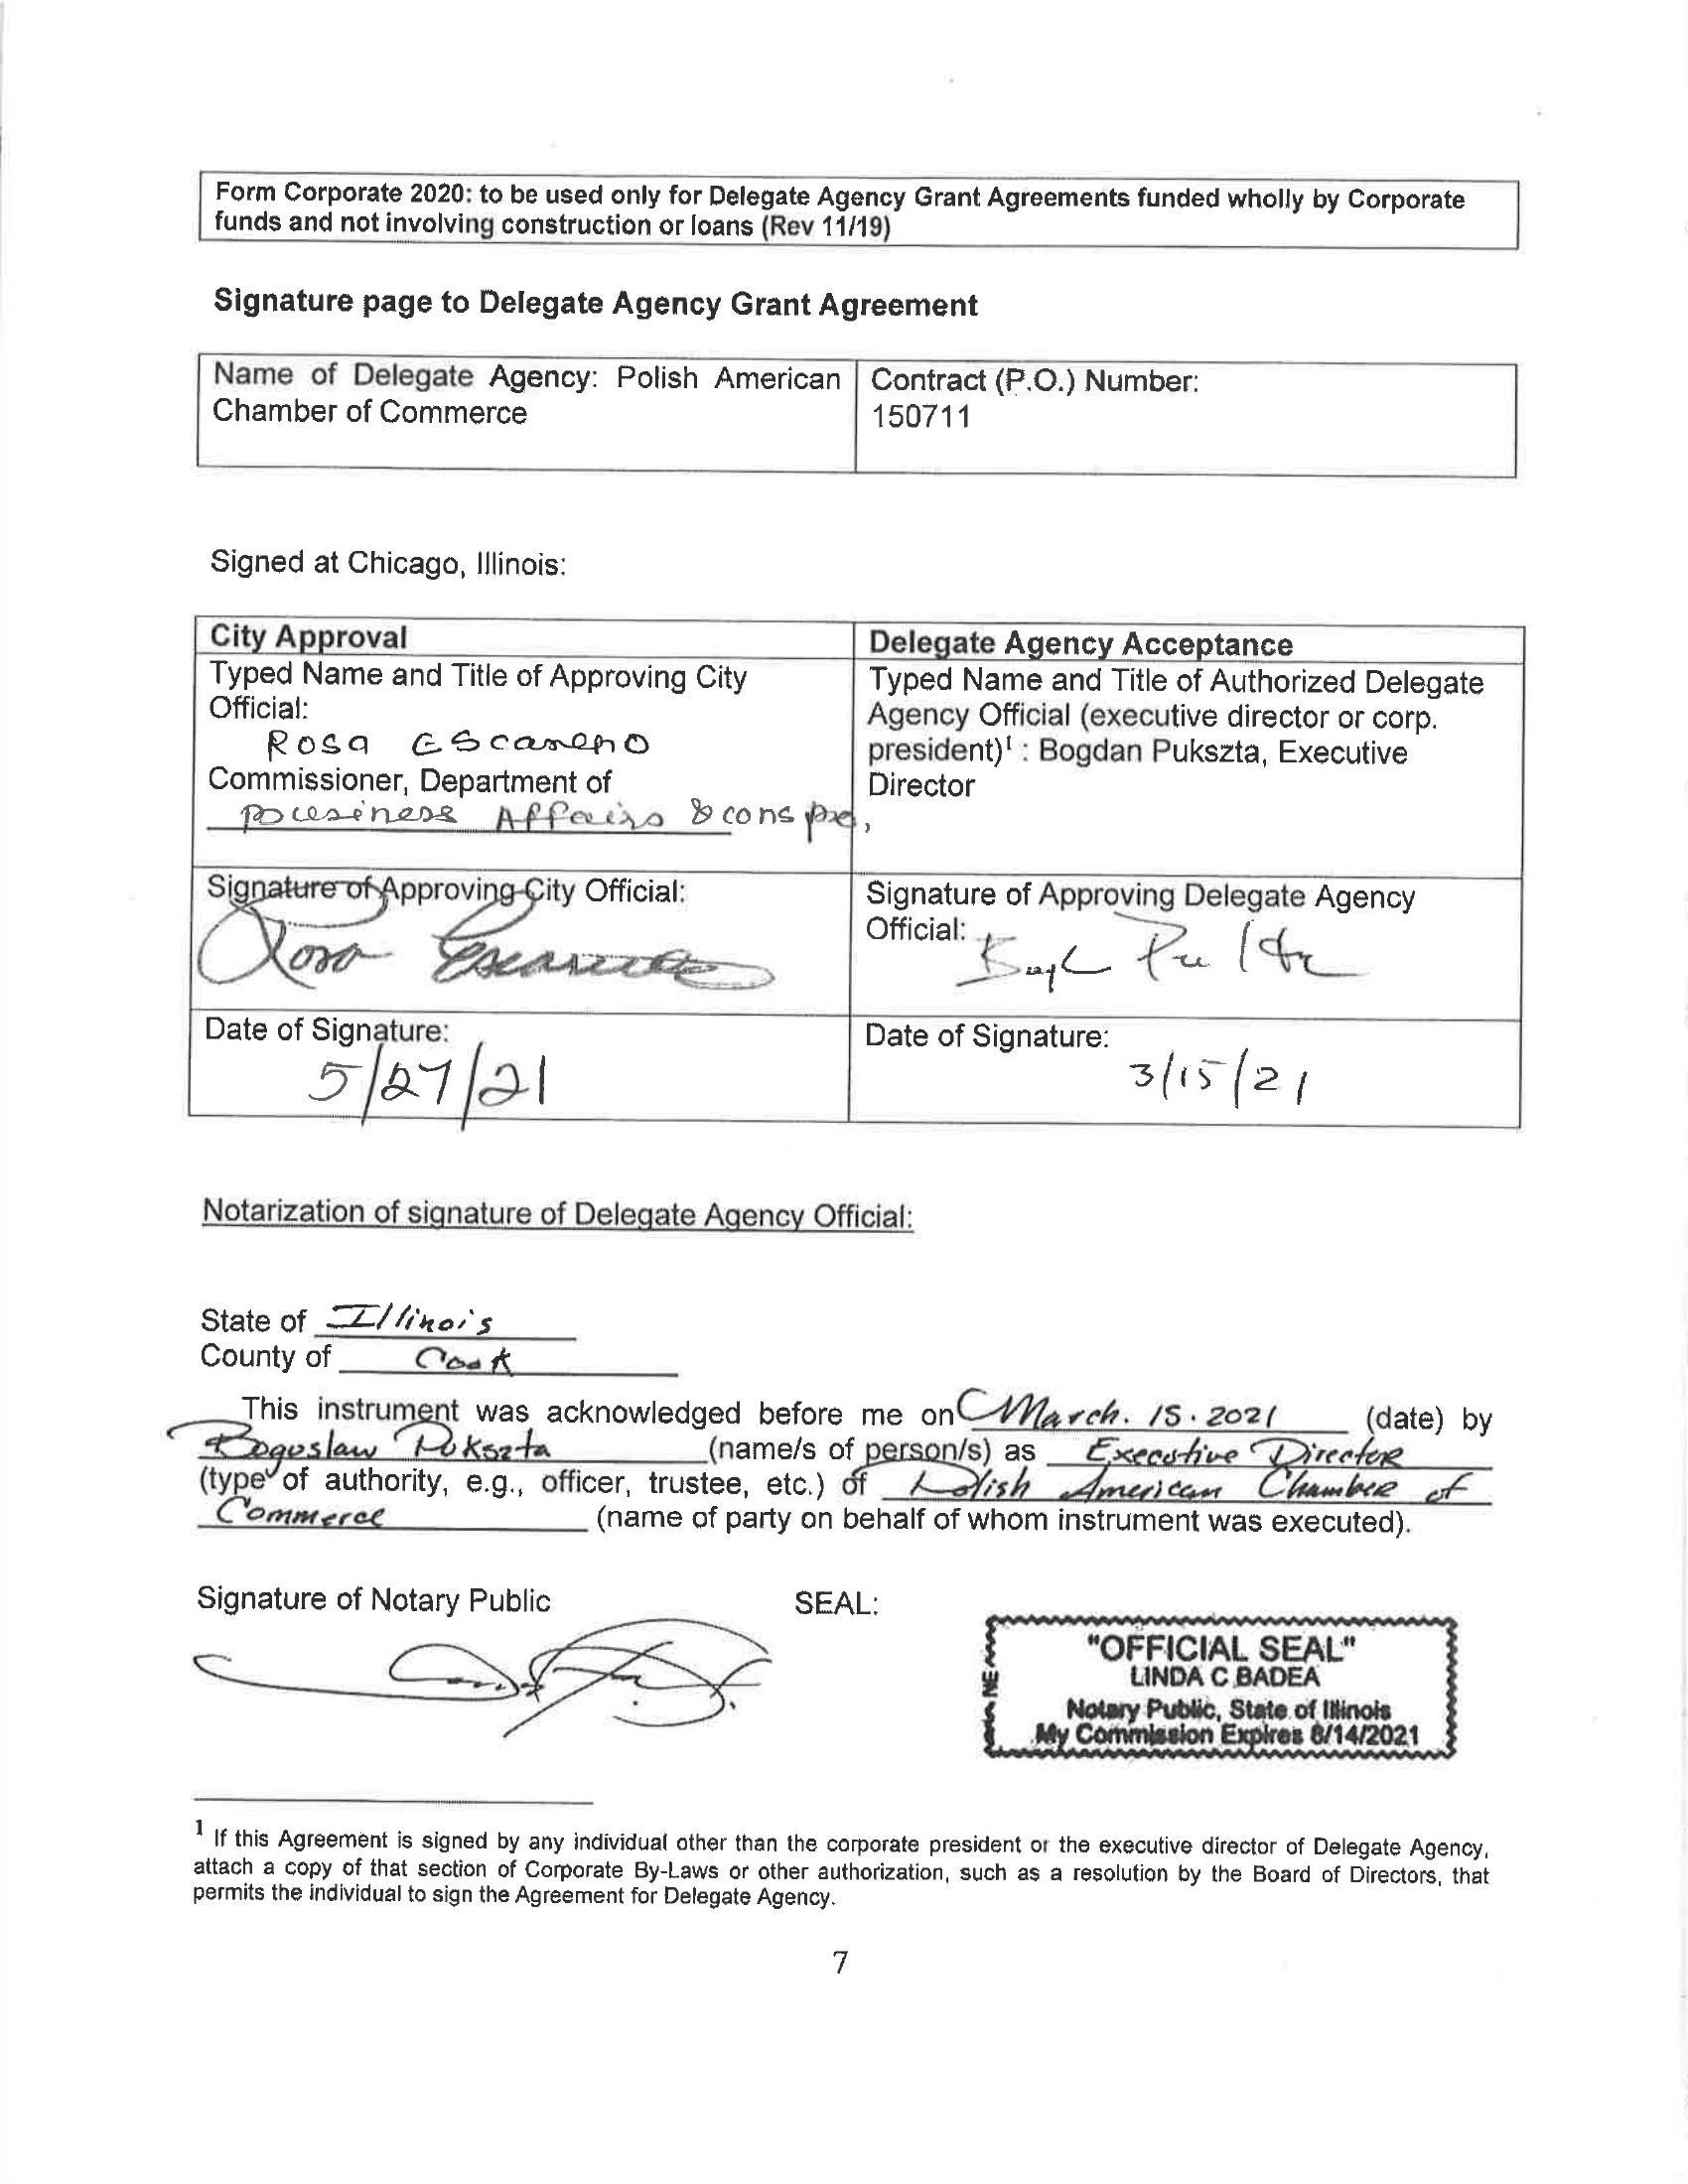 Form Corporate 2020: to be used only for Delegate Agency Grant Agreements funded wholly by Corporate
funds and not involving construction or loans (Rev 11/19)
Signature page to Delegate Agency Grant Agreement
Name of Delegate Agency: Polish American
Chamber of Commerce
Contract (P.O.) Number:
150711
Signed at Chicago, Illinois:
City Approval
Typed Name and Title of Approving City
Official:
Rosa Escareno
Commissioner, Department of
Business Affairs & cons pro,
Delegate Agency Acceptance
Typed Name and Title of Authorized Delegate
Agency Official (executive director or corp.
president)¹ : Bogdan Pukszta, Executive
Director
Signature of Approving City Official:
Rosa Escareno
Signature of Approving Delegate Agency
Official:
Date of Signature:
5/27/21
Date of Signature:
3/15/21
Notarization of signature of Delegate Agency Official:
State of Illinois
County of Cook
This instrument was acknowledged before me on March. 15. 2021 (date) by
Boguslaw Pukszta (name/s of person/s) as Executive Director
(type of authority, e.g., officer, trustee, etc.) of Polish American Chamber of
Commerce (name of party on behalf of whom instrument was executed).
Signature of Notary Public
SEAL:
"OFFICIAL SEAL"
LINDA C BADEA
Notary Public, State of Illinois
My Commission Expires 8/14/2021
¹ If this Agreement is signed by any individual other than the corporate president or the executive director of Delegate Agency,
attach a copy of that section of Corporate By-Laws or other authorization, such as a resolution by the Board of Directors, that
permits the individual to sign the Agreement for Delegate Agency.
7